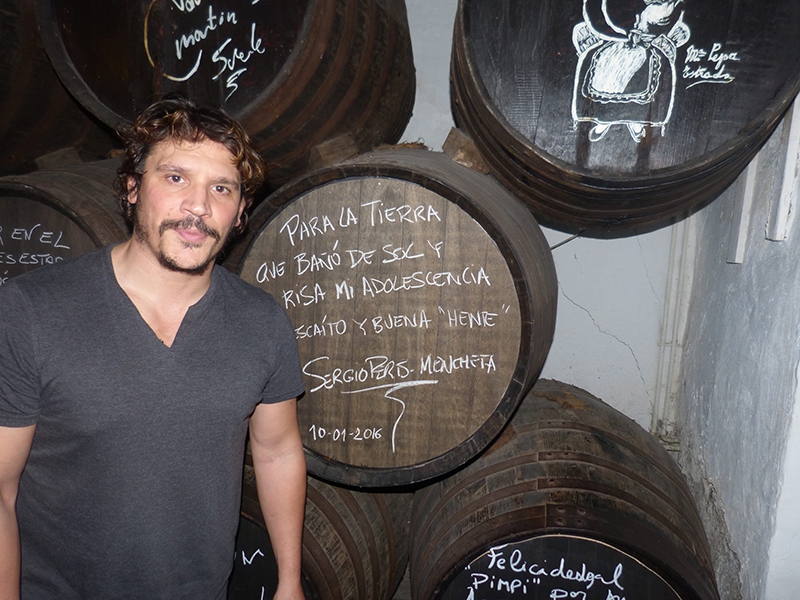 martin
Mª Pepa
Estrada
R EN EL
PARA LA TIERRA
QUE BAÑÓ DE SOL Y
RISA MI ADOLESCENCIA
ESCAÍTO Y BUENA "HENTE"
SERGIO PERIS-MENCHETA
10-01-2016
"Felicidesgal
PIMPI" POR